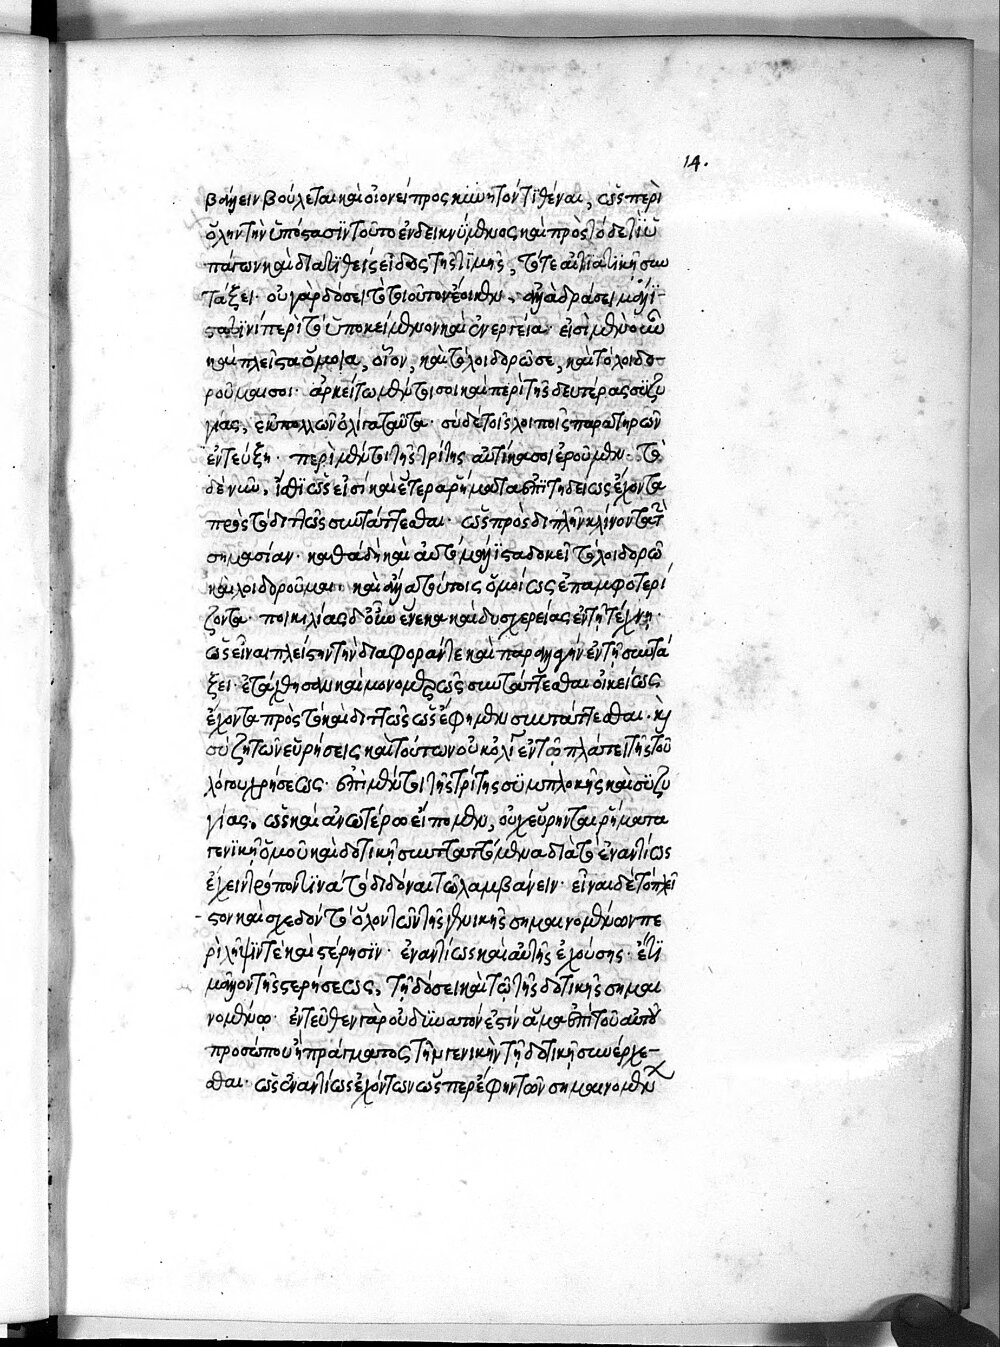 14.
βάλλειν βούλεται καὶ οἱονεὶ προσκινητόν τιθέναι, ὡς περὶ
ὅλην τὴν ὑπόστασιν τοῦτο ἐνδεικνύμενος καὶ πρὸς τόδε τι
καὶ διατιθεὶς εἶδος τῆς τιμῆς, τότε αἰτιατικῇ συν
τάξει· οὐ γὰρ δόσει τὸ τοιοῦτον ἔοικεν, ἀλλὰ δράσει μάλι-
στα τινὶ περὶ τὸ ὑποκείμενον καὶ ἐνεργεία· εἰσὶ μὲν οὖν
καὶ πλεῖστα ὅμοια, οἷον, καὶ τὸ λοιδορῶ σε, καὶ τὸ λοιδο-
ροῦμαι σοι· ἀρκείτω μέν τοι σοι καὶ περὶ τῆς δευτέρας συζυ
γίας, ἐκ πολλῶν ὀλίγα ταῦτα· σὺ δὲ τοῖς λοιποῖς παρατηρῶν
ἐντεύξῃ· περὶ μέν τοι τῆς τρίτης αὐτίκα σοι ἐροῦμεν· τὸ
δὲ νῦν, ἴσθι ὡς εἰσὶ καὶ ἕτερα ῥήματα ἐπιτηδείως ἔχοντα
πρὸς τὸ διττῶς συντάττεσθαι· ὡς πρὸς διπλῆν κλίνοντα τὴν
σημασίαν· καθὰ δὴ καὶ αὐτὸ μάλιστα δοκεῖ τὸ λοιδορῶ
καὶ λοιδοροῦμαι· καὶ ἀλλ' ἄττα τύποις ὁμοίως ἐπαμφοτερί
ζοντα· ποικιλίας δ' οὖν ἕνεκα καὶ δυσχερείας ἐν τῇ τέχνῃ·
ὡς εἶναι πλείστην τὴν διαφοράν τε καὶ παραλλαγὴν ἐν τῇ συντά
ξει· ἐτάχθησαν καὶ μονομερῶς συντάττεσθαι οἰκείως
ἔχοντα πρὸς τὸ καὶ διττῶς ὡς ἔφημεν συντάττεσθαι· καὶ
σὺ ζητῶν εὑρήσεις καὶ τούτων οὐκ ὀλίγα ἐν τῷ πλάτει τῆς τοῦ
λόγου χρήσεως· ἐπὶ μέν τοι τῆς τρίτης συμπλοκῆς καὶ συζυ
γίας, ὡς καὶ ἀνωτέρω εἴπομεν, οὐχ εὕρηνται ῥήματα
γενικῇ ὁμοῦ καὶ δοτικῇ συνταττόμενα διὰ τὸ ἐναντίως
ἔχειν τρόπον τινὰ τὸ διδόναι τῷ λαμβάνειν· εἶναι δὲ τὸ πλεῖ
-στον καὶ σχεδὸν τὸ ὅλον τῶν τῆς γενικῆς σημαινομένων πε
ρὶ λῆψίν τε καὶ στέρησιν· ἐναντίως καὶ αὐτῆς ἐχούσης· ἔτι
μᾶλλον τῆς στερήσεως, τῇ δόσει καὶ τῷ τῆς δοτικῆς σημαι
νομένῳ· ἐντεῦθεν γὰρ οὐ δυνατόν ἐστιν ἅμα ἐπὶ τοῦ αὐτοῦ
προσώπου ἢ πράγματος τὴν γενικὴν τῇ δοτικῇ συνέρχε-
σθαι· ὡς ἐναντίως ἐχόντων ὥσπερ ἔφην τῶν σημαινομένων